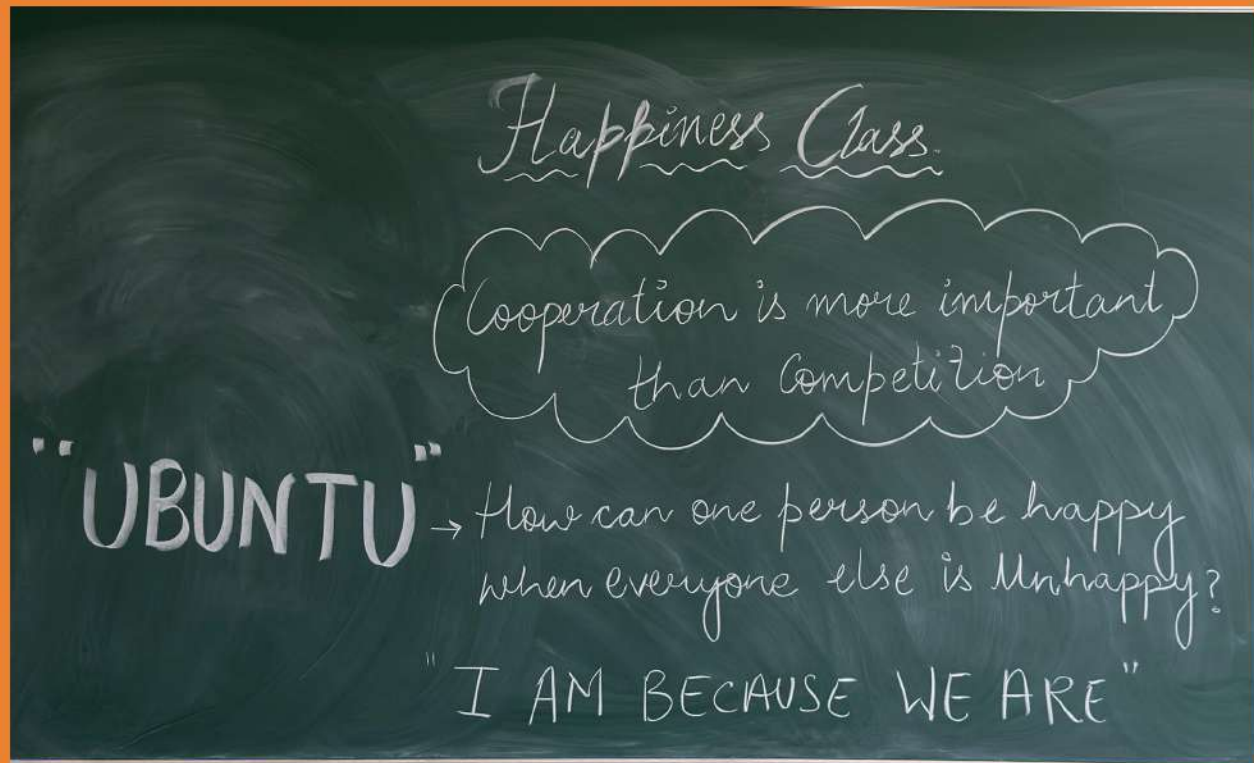 Happiness Class
Cooperation is more important
than Competition
"UBUNTU" → How can one person be happy
when everyone else is Unhappy?
"I AM BECAUSE WE ARE"